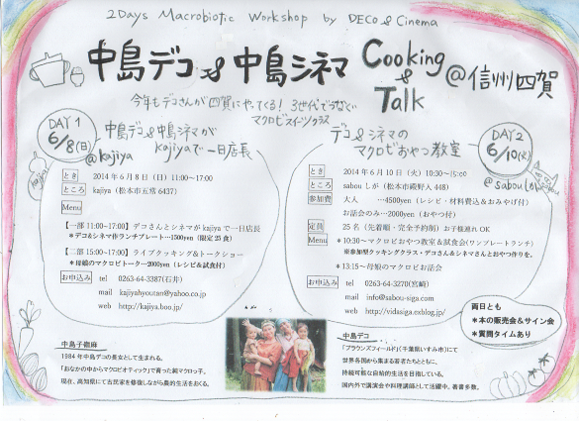 2Days Macrobiotic Workshop by DECO & Cinema
中島デコ & 中島シネマ Cooking & Talk @信州四賀
今年もデコさんが四賀にやってくる! 3世代でつなぐ
マクロビスイーツクラス
DAY1
6/8(日)
@kajiya
中島デコ&中島シネマが
kajiyaで一日店長
とき 2014年6月8日(日) 11:00〜17:00
ところ kajiya(松本市五常6437)
Menu
【一部 11:00〜17:00】デコさんとシネマがkajiyaで一日店長
*デコ&シネマ作ランチプレート…1500yen(限定25食)
【二部 15:00〜17:00】ライブクッキング&トークショー
*母娘のマクロビトーク…2000yen(レシピ&試食付)
お申込み tel 0263-64-3387(石井)
mail kajiyahyoutan@yahoo.co.jp
web http://kajiya.boo.jp/
デコ&シネマの
マクロビおやつ教室
DAY2
6/10(火)
@sabouしが
とき 2014年6月10日(火) 10:30〜15:00
ところ sabouしが(松本市殿野入448)
参加費 大人 …4500yen(レシピ・材料費込&おみやげ付)
お話会のみ…2000yen(おやつ付)
定員 25名(先着順・完全予約制)お子様連れOK
Menu
*10:30〜マクロビおやつ教室&試食会(ワンプレートランチ)
参加型クッキングクラス・デコさん&シネマさんとおやつ作りを。
*13:15〜母娘のマクロビお話会
お申込み tel 0263-64-3270(宮崎)
mail info@sabou-siga.com
web http://vidasiga.exblog.jp/
両日とも
*本の販売会&サイン会
*質問タイムあり
中島子嶺麻
1984年中島デコの長女として生まれる。
「おなかの中からマクロビオティック」で育った純マクロっ子。
現在、高知県にて古民家を修復しながら農的生活をおくる。
中島デコ
「ブラウンズフィールド」(千葉県いすみ市)にて
世界各国から集まる若者たちとともに、
持続可能な自給的生活を目指している。
国内外で講演会や料理講師として活躍中。著書多数。